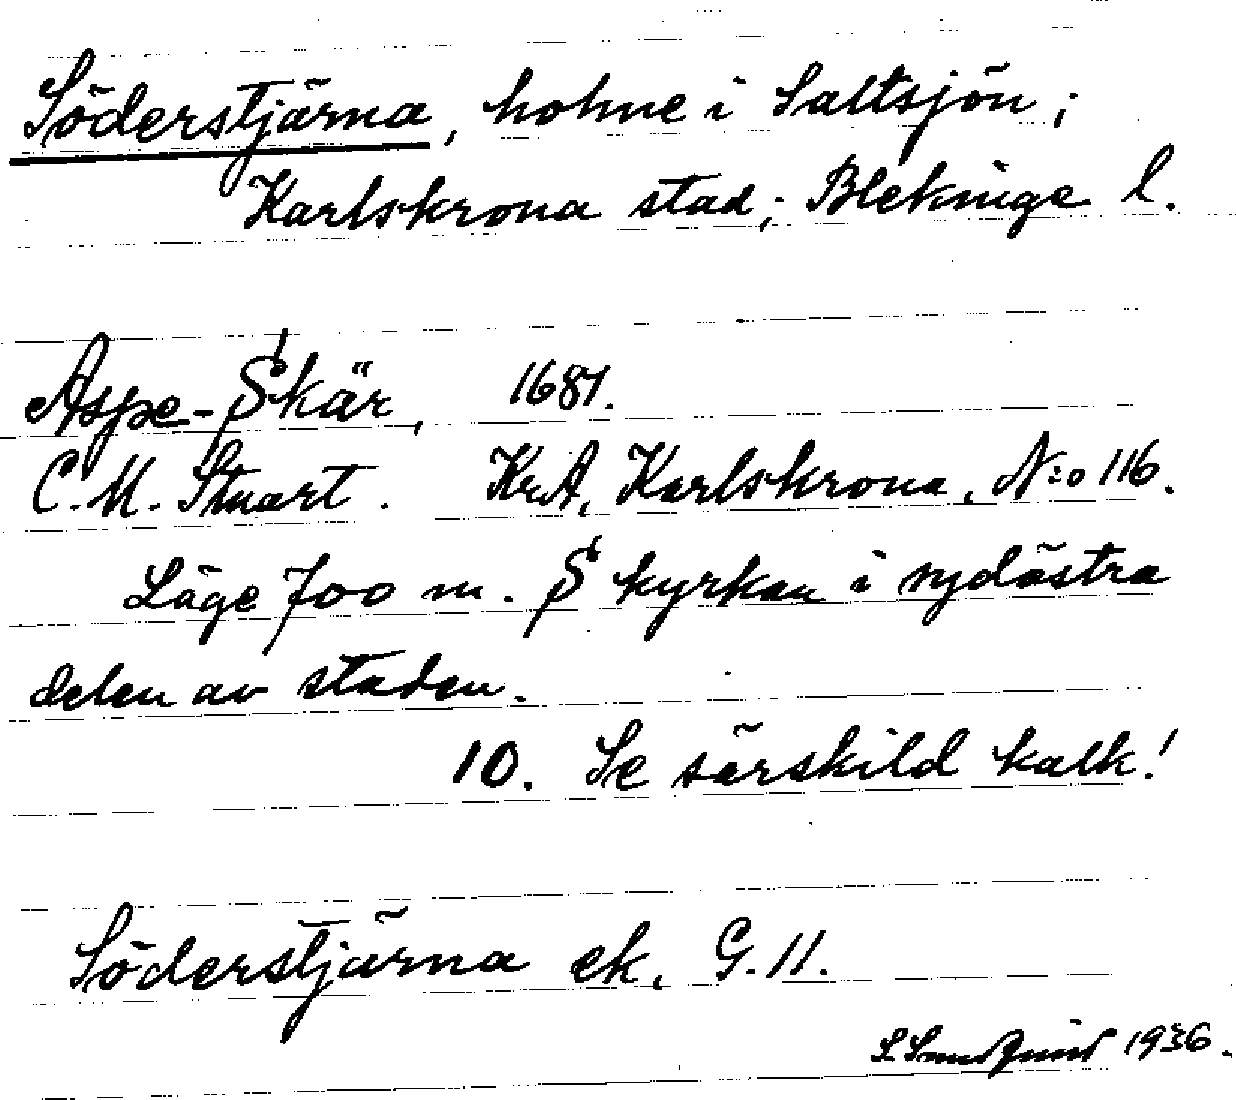 Söderstjärna, holme i Saltsjön;
Karlskrona stad; Blekinge l.
Aspe-Skär, 1681.
C.M. Stuart. KrA, Karlskrona, N:o 116.
Läge 700 m. S kyrkan i sydöstra
delen av staden.
10. Se särskild kalk!
Söderstjärna ek. G.11.
1936.